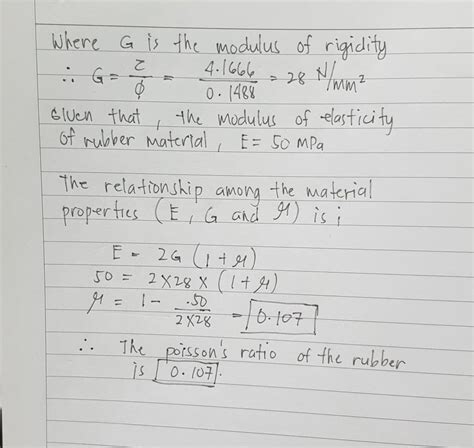 Where G is the modulus of rigidity
∴ G = τ/φ = 4.1666/0.1488 = 28 N/mm²
Given that, the modulus of elasticity
of rubber material, E = 50 MPa
The relationship among the material
properties (E, G and μ) is ;
E = 2G (1 + μ)
50 = 2 x 28 x (1 + μ)
μ = 1 - .50/2x28 = 0.107
∴ The poisson's ratio of the rubber
is 0.107.